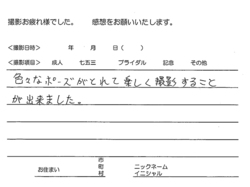 撮影お疲れ様でした。　感想をお願いいたします。
＜撮影日時＞　年　月　日（　）
＜撮影項目＞　成人　七五三　ブライダル　記念　その他
色々なポーズがとれて楽しく撮影すること
が出来ました。
お住まい　市町村　ニックネーム イニシャル